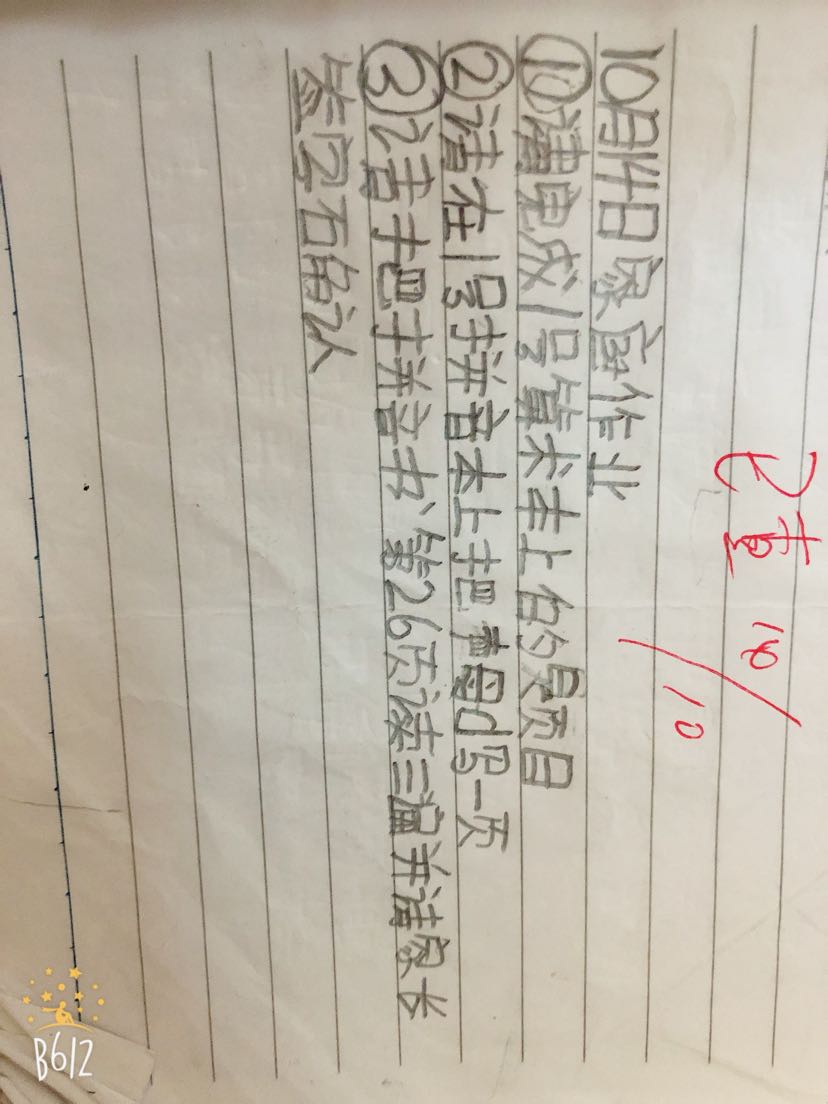 已查 10/10
10月14日家庭作业
①请完成1号算术本上的题目
②请在1号拼音本上把声母d写一页
③请把拼音书、第26页读三遍并请家长
签字石角认
B612